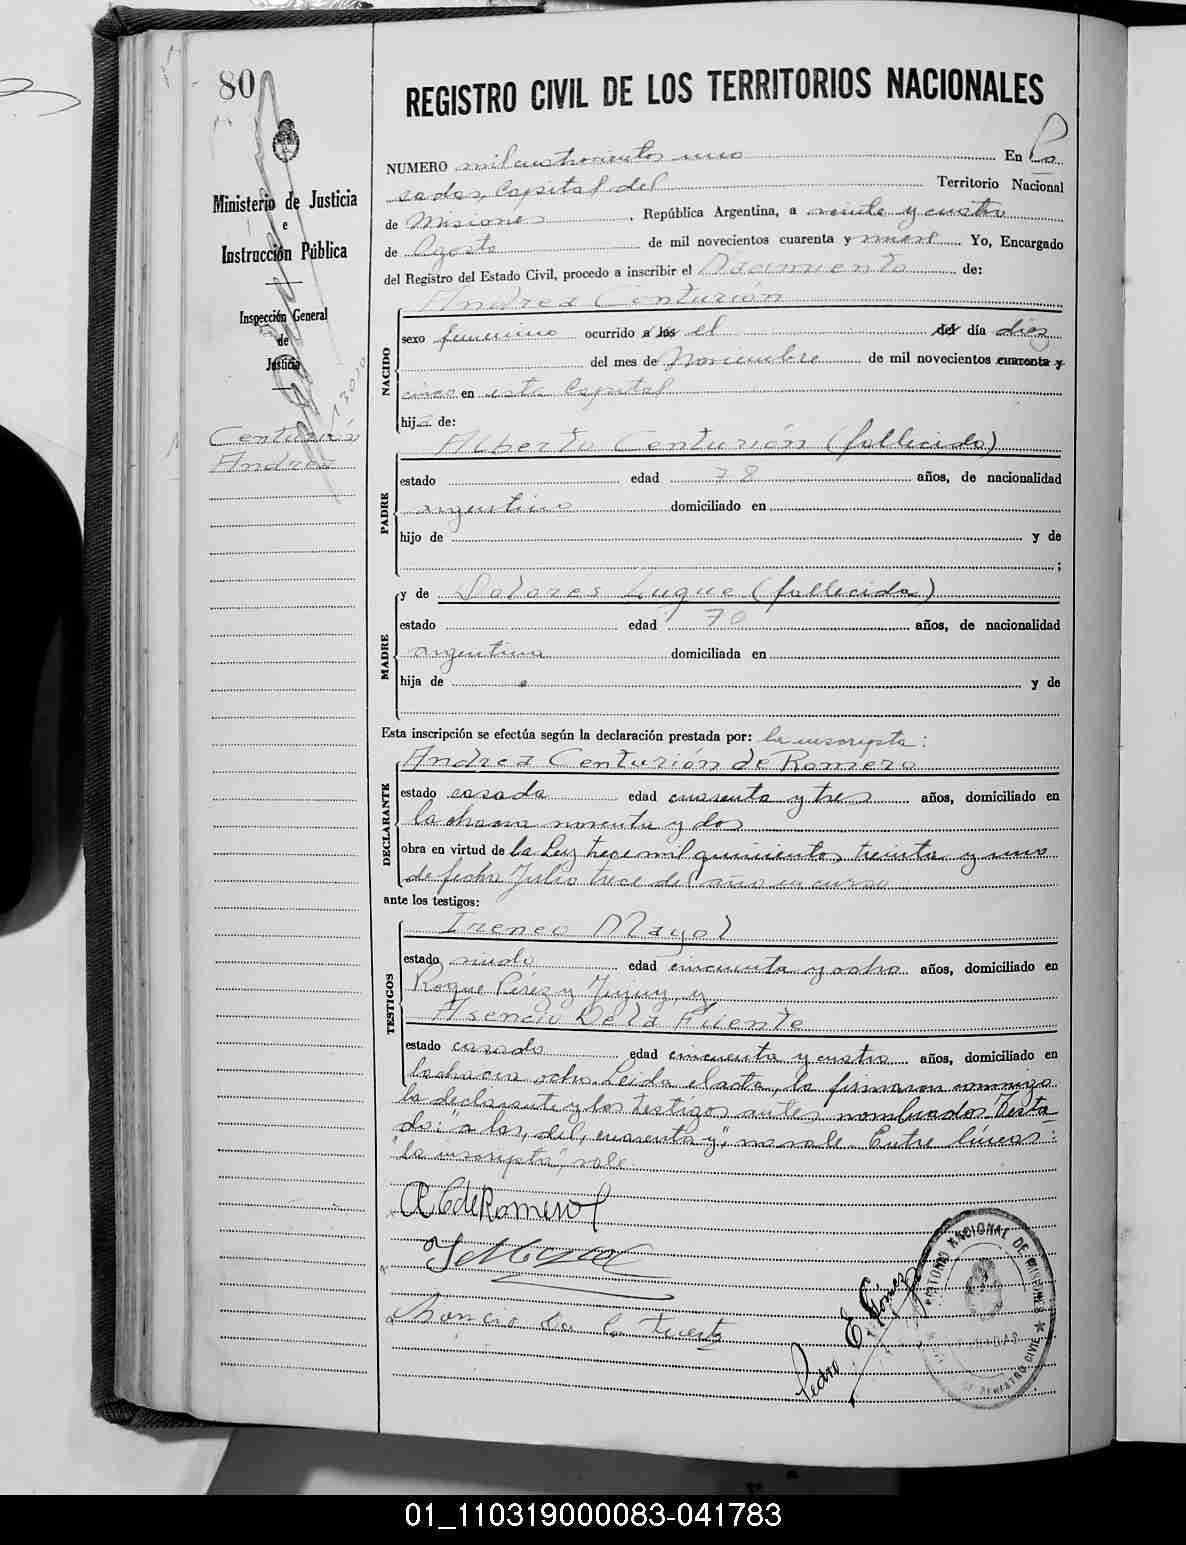 80
REGISTRO CIVIL DE LOS TERRITORIOS NACIONALES
Ministerio de Justicia
e
Instrucción Pública
Inspección General
de
Justicia
Centurión
Andrea
NUMERO mil cuatrocientos uno En Po
sadas, Capital del Territorio Nacional
de Misiones, República Argentina, a veinte y cuatro
de Agosto de mil novecientos cuarenta y nueve Yo, Encargado
del Registro del Estado Civil, procedo a inscribir el Nacimiento de:
Andrea Centurión
NACIDO
sexo femenino ocurrido a las el del día diez
del mes de Noviembre de mil novecientos cuarenta y
cinco en esta Capital
hija de:
Alberto Centurión (fallecido)
PADRE
estado edad 78 años, de nacionalidad
argentino domiciliado en
hijo de y de
;
y de Dolores Luque (fallecida)
MADRE
estado edad 70 años, de nacionalidad
argentina domiciliada en
hija de y de
Esta inscripción se efectúa según la declaración prestada por: la inscripta:
Andrea Centurión de Romero
DECLARANTE
estado casada edad cuarenta y tres años, domiciliado en
la chacra noventa y dos
obra en virtud de la Ley trece mil quinientos treinta y uno
de fecha Julio trece del año en curso
ante los testigos:
Ireneo Mayol
TESTIGOS
estado viudo edad cincuenta y ocho años, domiciliado en
Roque Pérez y Jujuy, y
Asencio De la Fuente
estado casado edad cincuenta y cuatro años, domiciliado en
la chacra ocho. Leida el acta, la firmaron conmigo
la declarante y los testigos antes nombrados. Testa
do: "a las, del, cuarenta y", no vale. Entre líneas:
"la inscripta", vale.
A C de Romero
I Mayol
Asencio de la Fuente
Pedro E. Gómez
TERRITORIO NACIONAL DE MISIONES
POSADAS
REGISTRO CIVIL
01_110319000083-041783